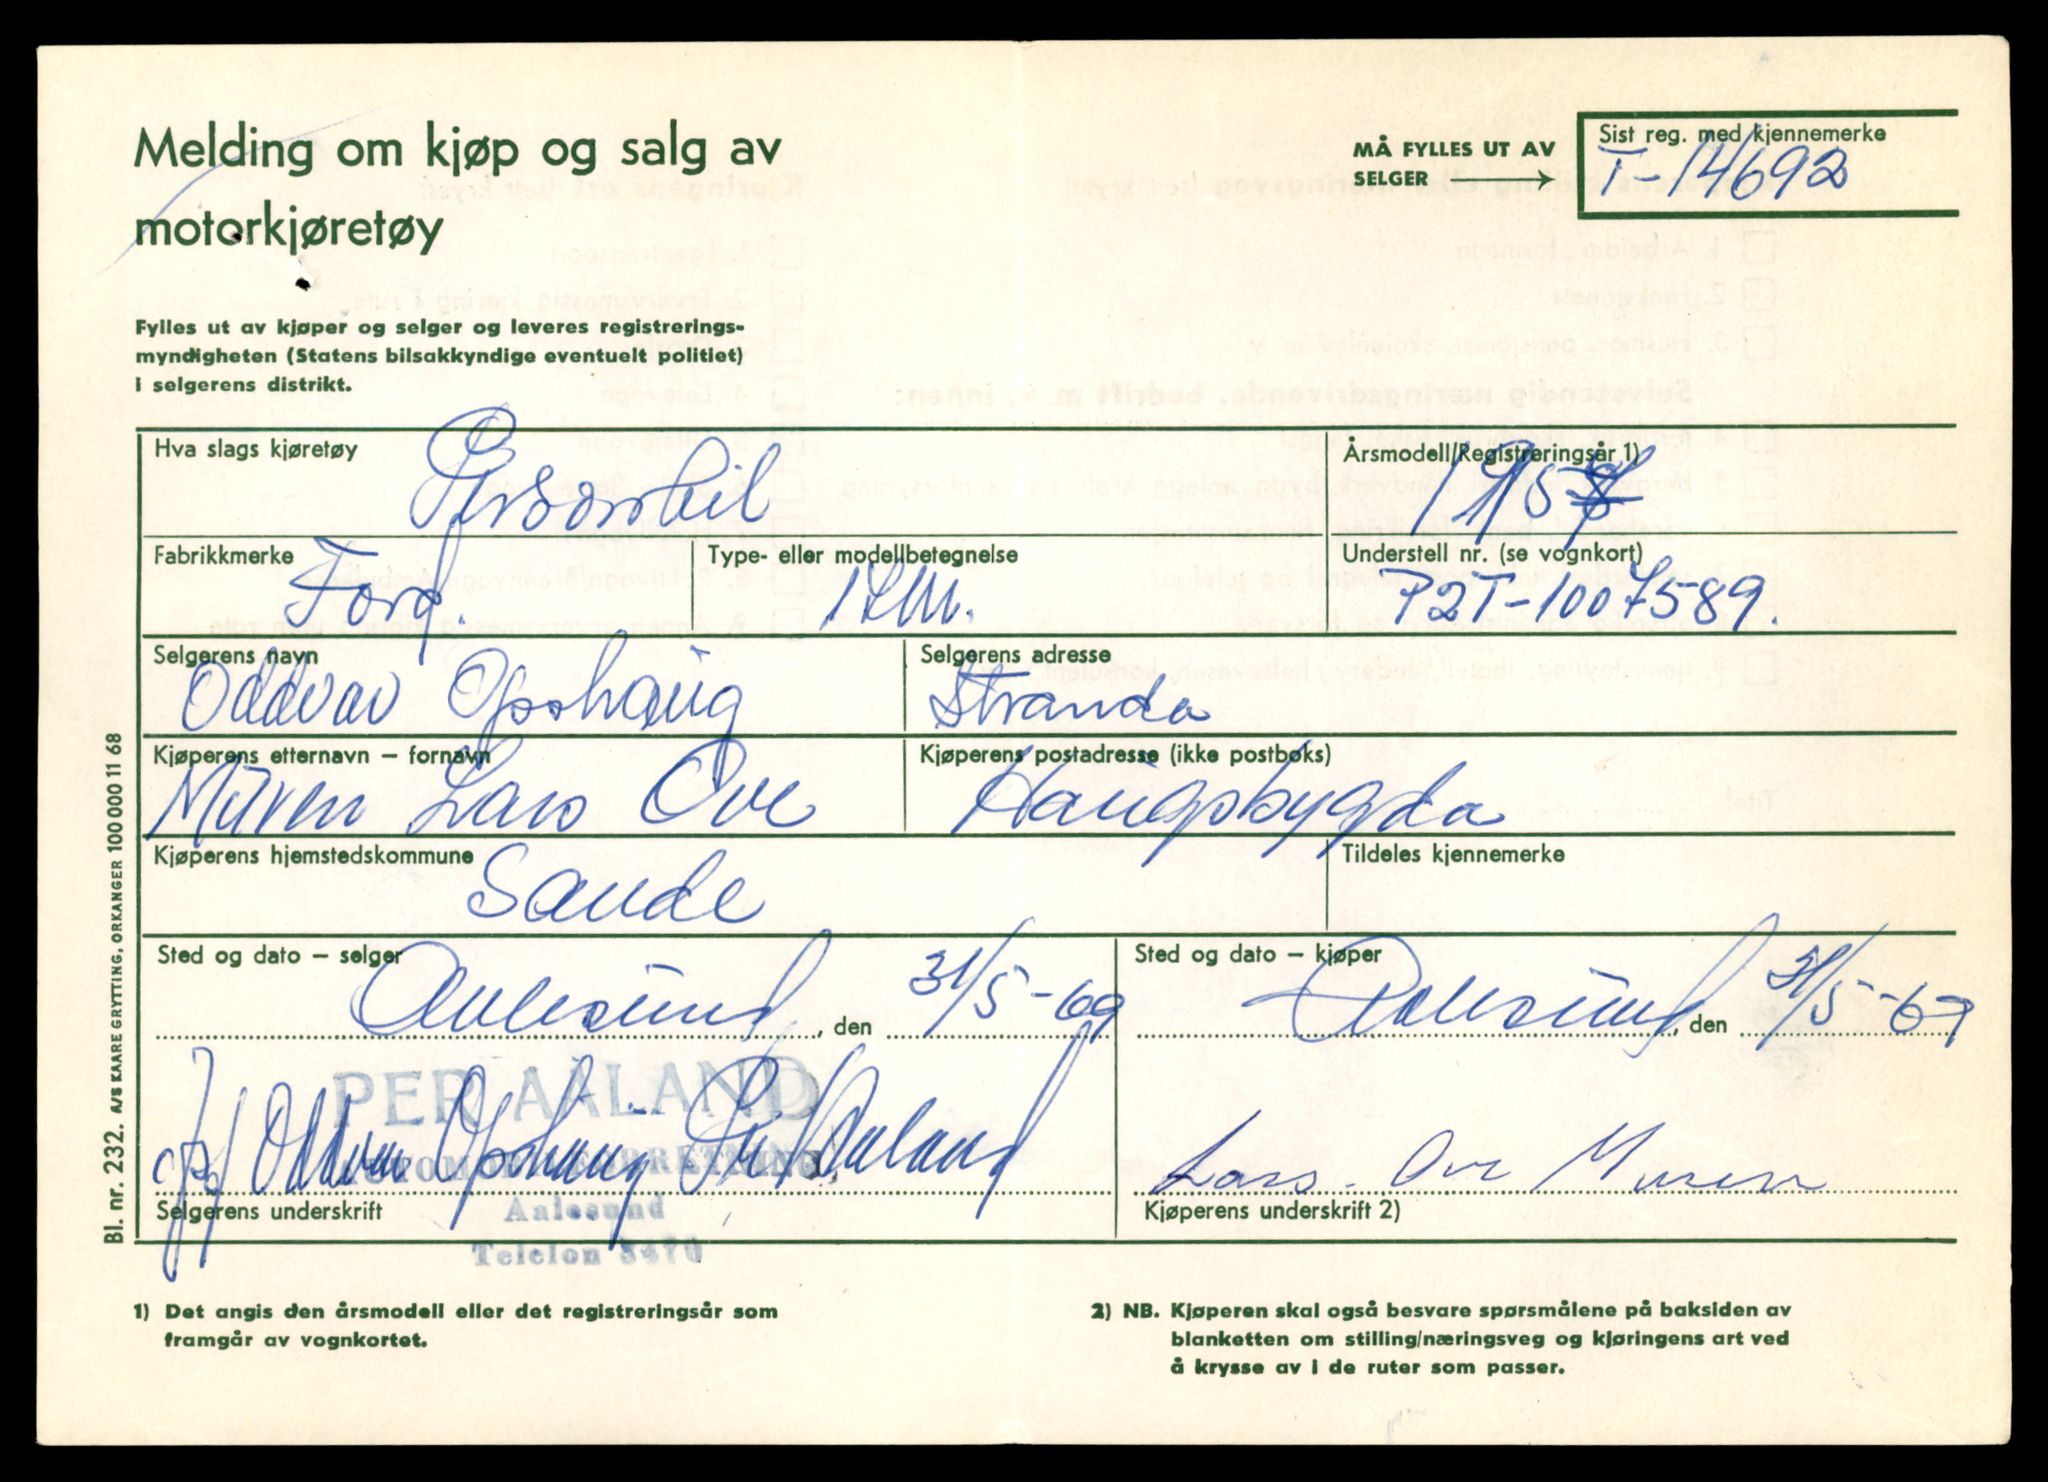 Melding om kjøp og salg av
motorkjøretøy
MÅ FYLLES UT AV
SELGER
Sist reg. med kjennemerke
T-14692
Fylles ut av kjøper og selger og leveres registrerings-
myndigheten (Statens bilsakkyndige eventuelt politiet)
i selgerens distrikt.
Hva slags kjøretøy
Personbil
Årsmodell/Registreringsår 1)
Fabrikkmerke
Ford.
Type- eller modellbetegnelse
17M.
Understell nr. (se vognkort)
P2T-1007589.
Selgerens navn
Oddvar Opshaug
Selgerens adresse
Stranda
Kjøperens etternavn – fornavn
Muren Lars Ove
Kjøperens postadresse (ikke postboks)
Haugsbygda
Kjøperens hjemstedskommune
Sande
Tildeles kjennemerke
Sted og dato – selger
Aalesund, den 31/5-69
Sted og dato – kjøper
Aalesund, den 31/5-69
PER AALAND
AUTOMOBILFORRETNING
Aalesund
Telefon 3470
Oddvar Opshaug Per Aaland
Selgerens underskrift
Lars. Ove Muren
Kjøperens underskrift 2)
1) Det angis den årsmodell eller det registreringsår som
framgår av vognkortet.
2) NB. Kjøperen skal også besvare spørsmålene på baksiden av
blanketten om stilling/næringsveg og kjøringens art ved
å krysse av i de ruter som passer.
Bl. nr. 232. A/S KAARE GRYTTING, ORKANGER 100 000 11 68